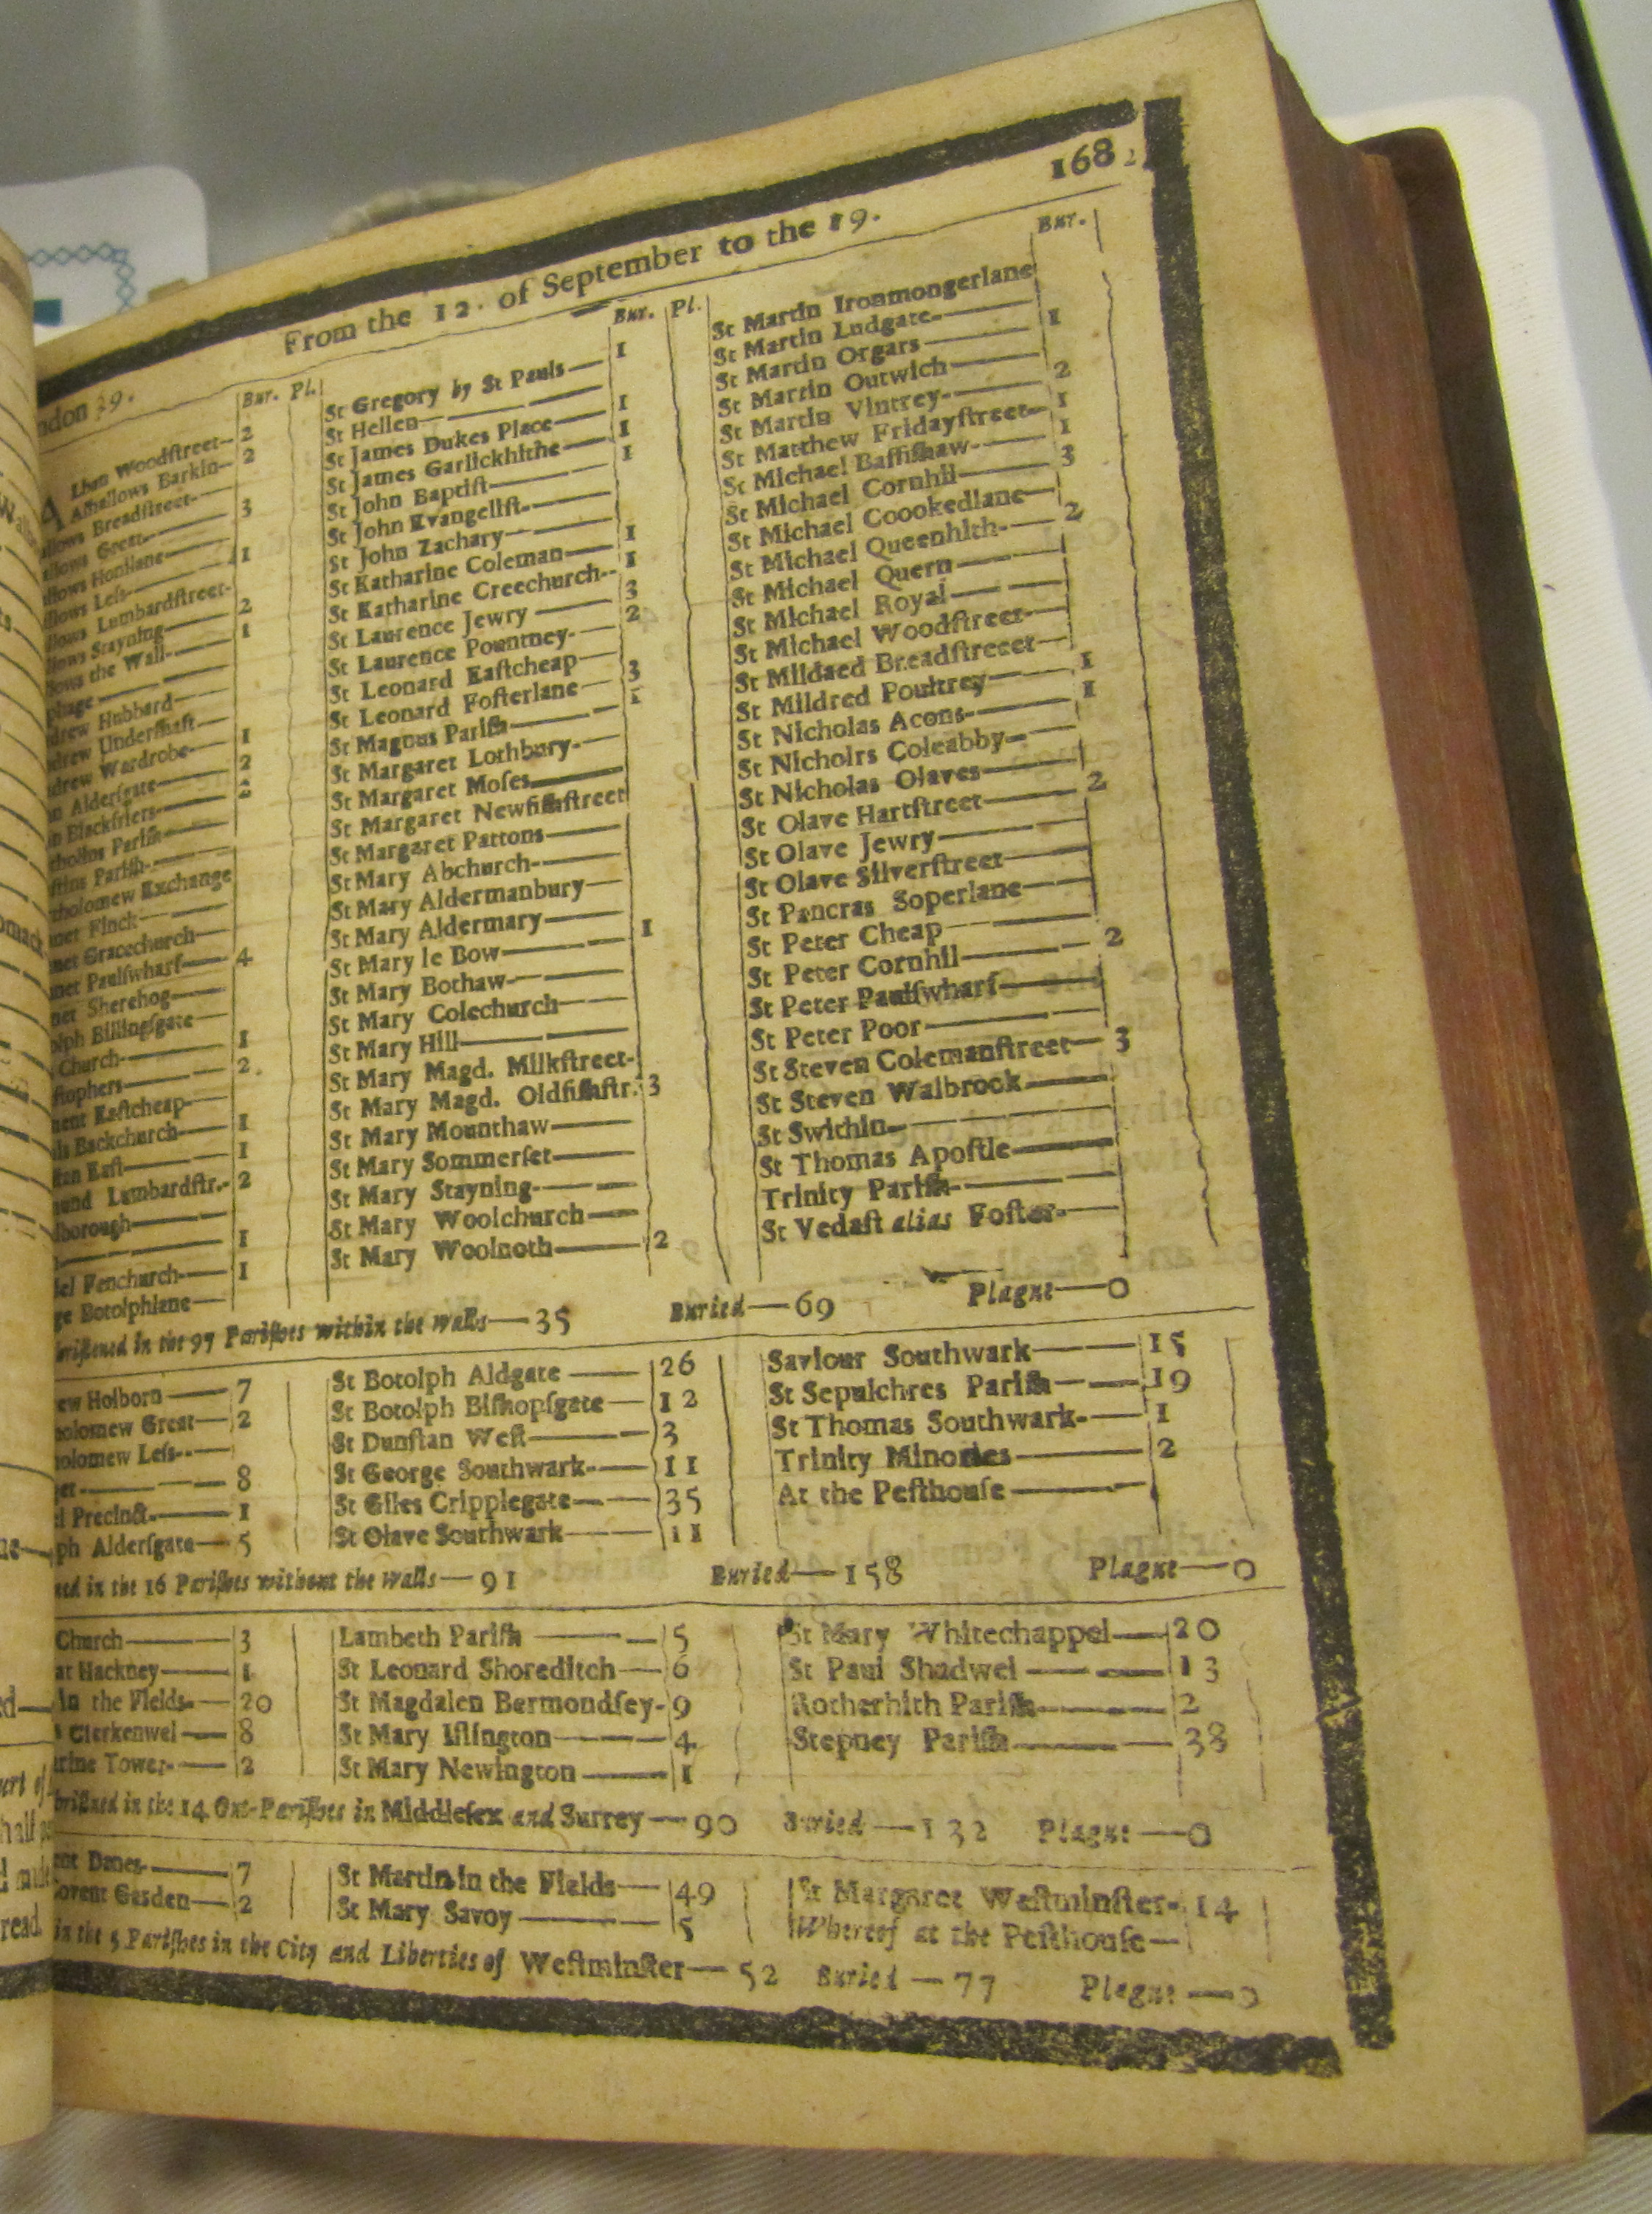 168
From the 12. of September to the 19.
ndon 39.
Bur. Pl.
lban Woodſtreet— 2
Alhallows Barkin— 2
llows Breadſtreet—
llows Great— 3
llows Honilane—
llows Leſs— 1
llows Lumbardſtreet-
llows Stayning— 2
llows the Wall— 1
phage—
drew Hubbard—
drew Underſhaft—
drew Wardrobe— 1
n Alderſgate— 2
n Blackfriers— 2
tholins Pariſh—
ſtins Pariſh—
tholomew Exchange
net Finck—
net Gracechurch—
net Paulſwharf— 4
net Sherehog—
olph Billingſgate—
Church— 1
ſtophers— 2
ment Eaſtcheap—
is Backchurch— 1
ſtan Eaſt— 1
mund Lumbardſtr.— 2
lborough—
— 1
iel Fenchurch— 1
ge Botolphlane—
Bur. Pl.
St Gregory by St Pauls— 1
St Hellen—
St James Dukes Place— 1
St James Garlickhithe— 1
St John Baptiſt— 1
St John Evangeliſt—
St John Zachary—
St Katharine Coleman— 1
St Katharine Creechurch— 1
St Laurence Jewry— 3
St Laurence Pountney— 2
St Leonard Eaſtcheap—
St Leonard Foſterlane— 3
St Magnus Pariſh— 1
St Margaret Lothbury—
St Margaret Moſes—
St Margaret Newfiſhſtreet
St Margaret Pattons—
St Mary Abchurch—
St Mary Aldermanbury—
St Mary Aldermary—
St Mary le Bow— 1
St Mary Bothaw—
St Mary Colechurch—
St Mary Hill—
St Mary Magd. Milkſtreet-
St Mary Magd. Oldfiſhſtr. 3
St Mary Mounthaw—
St Mary Sommerſet—
St Mary Stayning—
St Mary Woolchurch—
St Mary Woolnoth— 2
Bur.
St Martin Ironmongerlane
St Martin Ludgate—
St Martin Orgars— 1
St Martin Outwich—
St Martin Vintrey— 2
St Matthew Fridayſtreet— 1
St Michael Baſſiſhaw— 1
St Michael Cornhil— 3
St Michael Coookedlane—
St Michael Queenhith— 2
St Michael Quern—
St Michael Royal—
St Michael Woodſtreet—
St Mildaed Breadſtreeet—
St Mildred Poultrey— 1
St Nicholas Acons— 1
St Nicholrs Coleabby—
St Nicholas Olaves—
St Olave Hartſtreet— 2
St Olave Jewry—
St Olave Silverſtreet—
St Pancras Soperlane—
St Peter Cheap—
St Peter Cornhil— 2
St Peter Paulſwharf—
St Peter Poor—
St Steven Colemanſtreet— 3
St Steven Walbrook—
St Swithin—
St Thomas Apoſtle—
Trinity Pariſh—
St Vedaſt alias Foſter—
riſtened in the 97 Pariſhes within the walls— 35 Buried— 69 Plague— 0
ew Holborn— 7
holomew Great— 2
olomew Leſs—
get— 8
l Precinct— 1
ph Alderſgate— 5
St Botolph Aldgate— 26
St Botolph Biſhopſgate— 12
St Dunſtan Weſt— 3
St George Southwark— 11
St Giles Cripplegate— 35
St Olave Southwark— 11
Saviour Southwark— 15
St Sepulchres Pariſh— 19
St Thomas Southwark— 1
Trinity Minories— 2
At the Peſthouſe—
ned in the 16 Pariſhes without the walls— 91 Buried— 158 Plague— 0
Church— 3
at Hackney— 1
in the Fields— 20
Clerkenwel— 8
rine Tower— 2
Lambeth Pariſh— 5
St Leonard Shoreditch— 6
St Magdalen Bermondſey- 9
St Mary Iſlington— 4
St Mary Newington— 1
St Mary Whitechappel— 20
St Paul Shadwel— 13
Rotherhith Pariſh— 2
Stepney Pariſh— 38
briſtned in the 14 Out-Pariſhes in Middleſex and Surrey— 90 Buried— 132 Plague— 0
ent Danes— 7
Covent Gasden— 2
St Martin in the Fields— 49
St Mary Savoy— 5
St Margaret Weſtminſter- 14
Whereof at the Peſthouſe—
in the 5 Pariſhes in the City and Liberties of Weſtminſter— 52 Buried— 77 Plague— 0